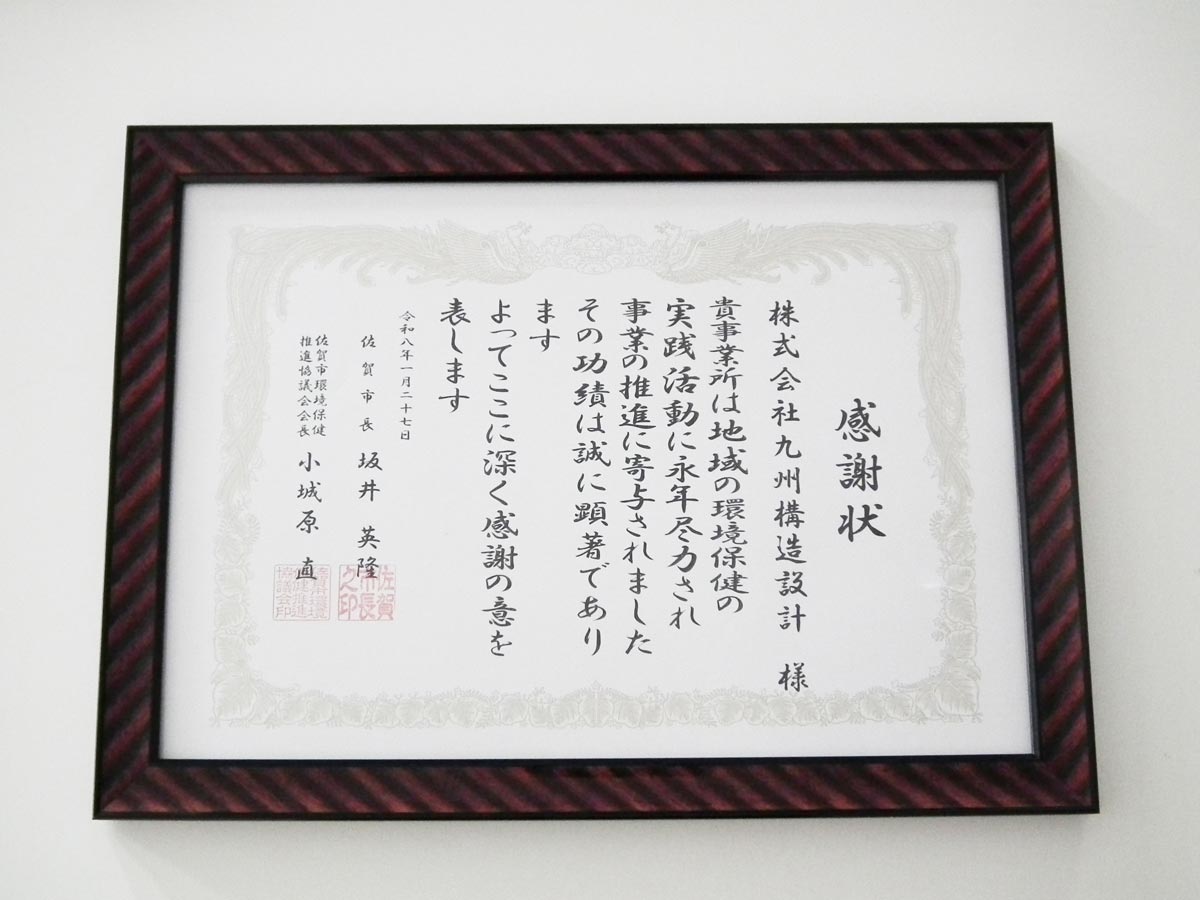 感謝状
株式会社九州構造設計 様
貴事業所は地域の環境保健の
実践活動に永年尽力され
事業の推進に寄与されました
その功績は誠に顕著であり
ます
よってここに深く感謝の意を
表します
令和八年一月二十七日
佐賀市長 坂井 英隆
佐賀市長之印
佐賀市環境保健
推進協議会会長 小城原 直
佐賀市環境保健推進協議会印